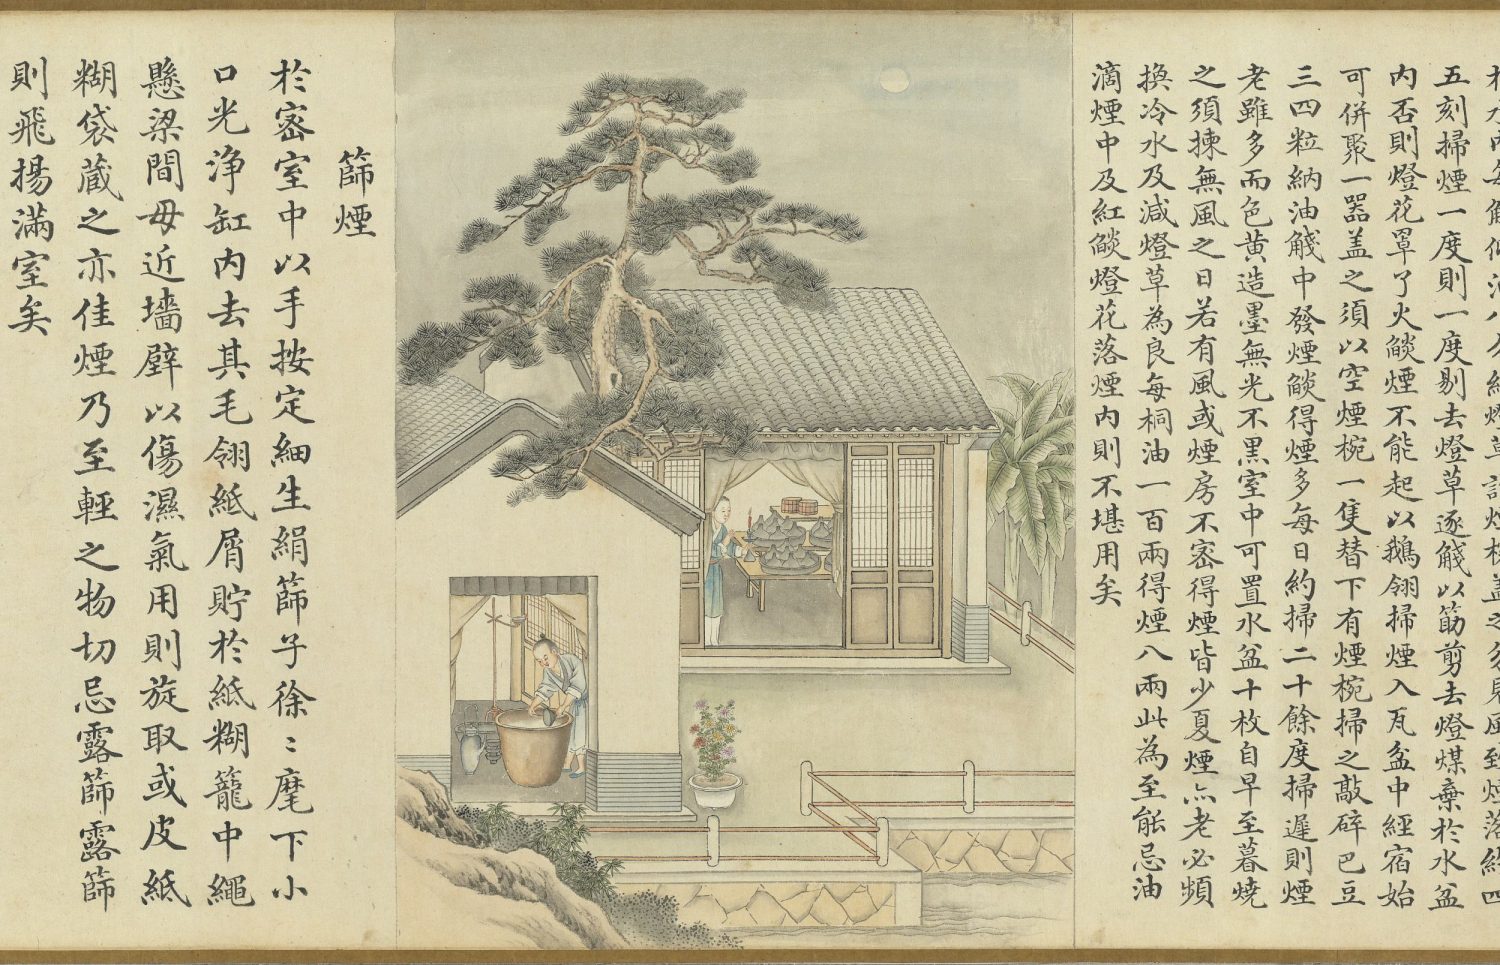 五刻掃煙一度則一度剔去燈草逐以筯剪去燈煤棄於水盆
内否則燈花罩了火燄煙不能起以鵝翎掃煙入瓦盆中經宿始
可併聚一噐盖之須以空煙椀一隻替下有煙椀掃之敲碎巴豆
三四粒納油中發煙燄得煙多每日約掃二十餘度掃遲則煙
老雖多而色黄造墨無光不黒室中可置水盆十枚自早至暮燒
之須揀無風之日若有風或煙房不宻得煙皆少夏煙亦老必頻
換冷水及減燈草為良每桐油一百兩得煙八兩此為至能忌油
滴煙中及紅燄燈花落煙内則不堪用矣
篩煙
於宻室中以手按定細生絹篩子徐〻麾下小
口光浄缸内去其毛翎紙屑貯於紙糊籠中繩
懸梁間毋近墻壁以傷濕氣用則旋取或皮紙
糊袋蔵之亦佳煙乃至輕之物切忌露篩露篩
則飛揚滿室矣